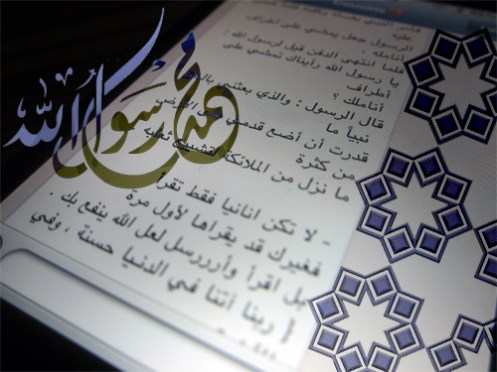 محمد رسول الله
الرسول جعل يمشي على أطراف
أنامله .
فلما انتهى الدفن قيل لرسول الله :
يا رسول الله رأيناك تمشي على
أطراف
أناملك ؟
قال الرسول : والذي بعثني
نبياً ما
قدرت أن أضع قدمي الأرض
من كثرة
ما نزل من الملائكة لتشييع ثعلبه
- لا تكن انانيا فقط تقرأ
فغيرك قد يقراها لأول مرة
بل اقرأ وأرررسل لعل الله ينفع بك .
{ ربنا اتنا في الدنيا حسنة ، وفي